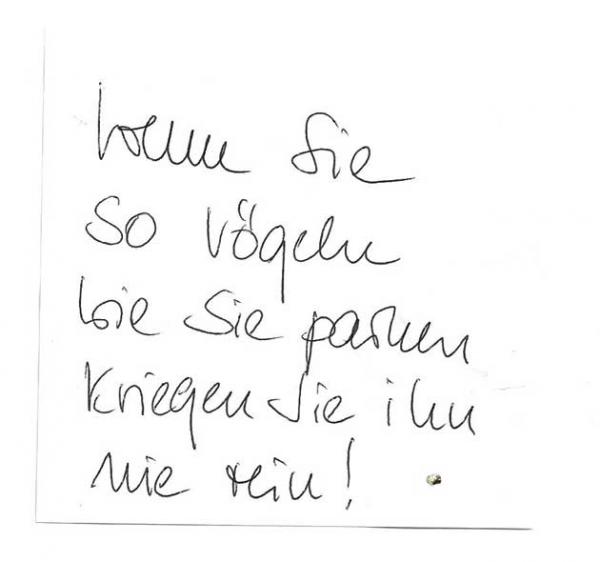 Wenn Sie
so vögeln
wie Sie parken
kriegen Sie ihn
nie rein!